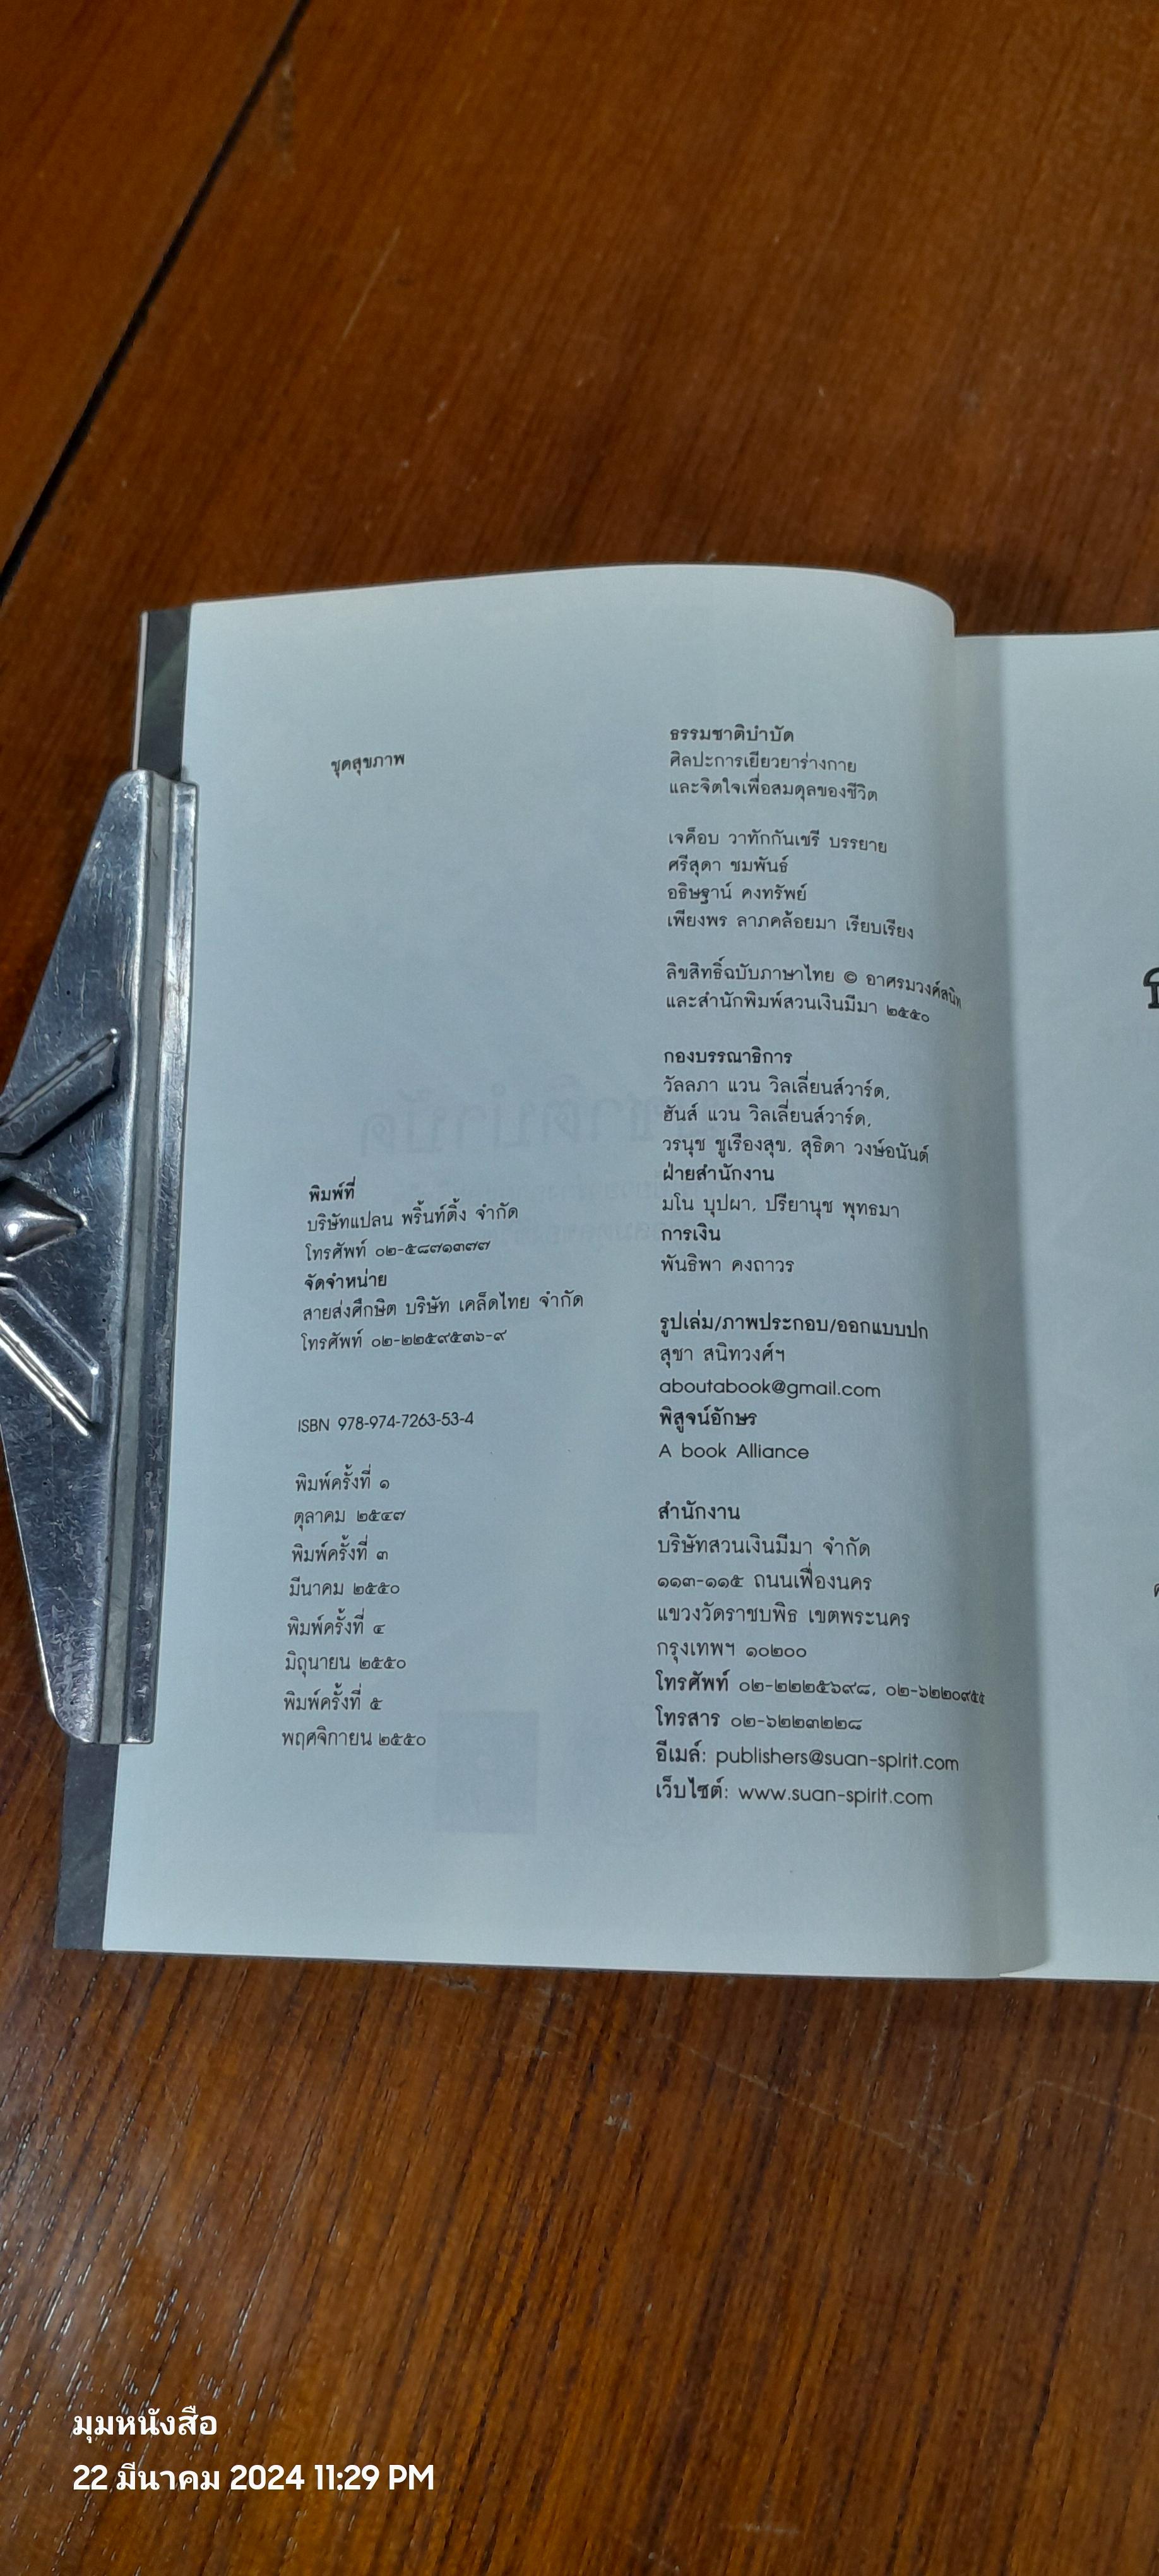 ชุดสุขภาพ
พิมพ์ที่
บริษัทแปลน พริ้นท์ติ้ง จำกัด
โทรศัพท์ ๐๒-๕๘๗๑๓๗๗
จัดจำหน่าย
สายส่งศึกษิต บริษัท เคล็ดไทย จำกัด
โทรศัพท์ ๐๒-๒๒๕๙๕๓๖-๙
ISBN 978-974-7263-53-4
พิมพ์ครั้งที่ ๑
ตุลาคม ๒๕๔๗
พิมพ์ครั้งที่ ๓
มีนาคม ๒๕๕๐
พิมพ์ครั้งที่ ๔
มิถุนายน ๒๕๕๐
พิมพ์ครั้งที่ ๕
พฤศจิกายน ๒๕๕๐
ธรรมชาติบำบัด
ศิลปะการเยียวยาร่างกาย
และจิตใจเพื่อสมดุลของชีวิต
เจค็อบ วาทักกันเชรี บรรยาย
ศรีสุดา ชมพันธ์
อธิษฐาน์ คงทรัพย์
เพียงพร ลาภคล้อยมา เรียบเรียง
ลิขสิทธิ์ฉบับภาษาไทย © อาศรมวงศ์สนิท
และสำนักพิมพ์สวนเงินมีมา ๒๕๕๐
กองบรรณาธิการ
วัลลภา แวน วิลเลี่ยนส์วาร์ด,
ฮันส์ แวน วิลเลี่ยนส์วาร์ด,
วรนุช ชูเรืองสุข, สุธิดา วงษ์อนันต์
ฝ่ายสำนักงาน
มโน บุปผา, ปรียานุช พุทธมา
การเงิน
พันธิพา คงถาวร
รูปเล่ม/ภาพประกอบ/ออกแบบปก
สุชา สนิทวงศ์ฯ
aboutabook@gmail.com
พิสูจน์อักษร
A book Alliance
สำนักงาน
บริษัทสวนเงินมีมา จำกัด
๑๑๓-๑๑๕ ถนนเฟื่องนคร
แขวงวัดราชบพิธ เขตพระนคร
กรุงเทพฯ ๑๐๒๐๐
โทรศัพท์ ๐๒-๒๒๒๕๖๙๘, ๐๒-๖๒๒๐๙๕๕
โทรสาร ๐๒-๖๒๒๓๒๒๘
อีเมล์: publishers@suan-spirit.com
เว็บไซต์: www.suan-spirit.com
มุมหนังสือ
22 มีนาคม 2024 11:29 PM